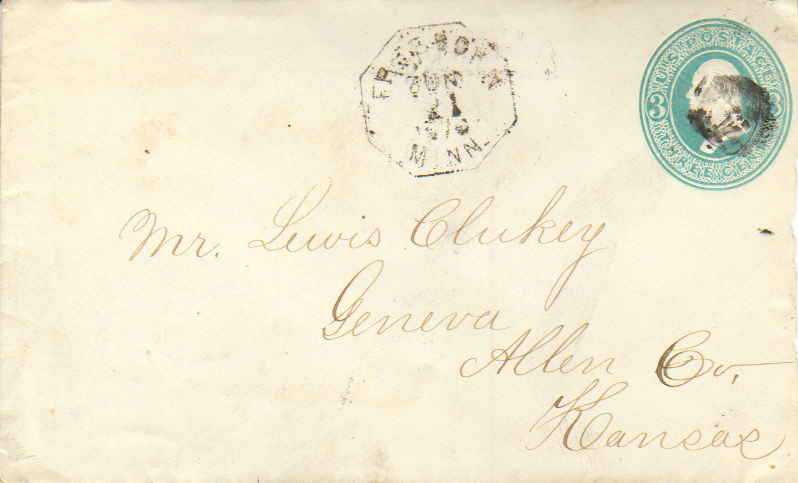 FREEBORN
JUN
21
MINN.
U.S. POSTAGE
3
THREE CENTS
Mr. Lewis Clukey
Geneva
Allen Co.
Kansas